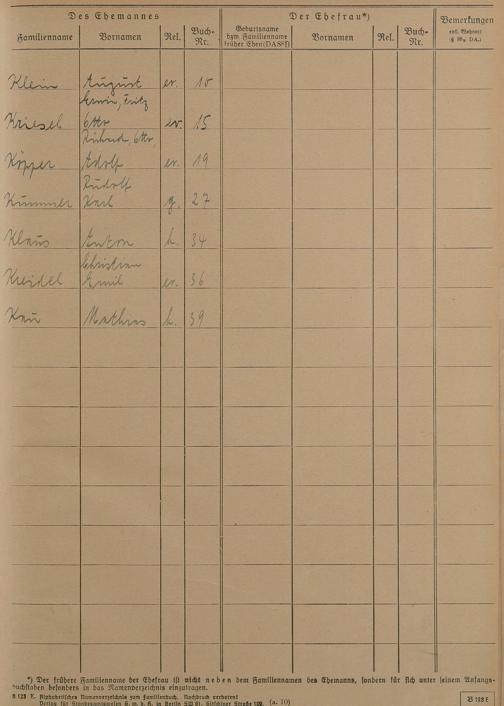 Des Ehemannes
Der Ehefrau*)
Bemerkungen
Familienname Vornamen Rel. Buch-Nr.
Geburtsname
bzw. Familienname
früher Ehen (DA § )
Vornamen Rel. Buch-Nr.
Klein August ev. 10
Erwin, Fritz
Kriesel Otto ev. 15
Richard, Otto,
Köpper Adolf ev. 19
Rudolf
Kümmel Karl g. 27
Klaus Anton k. 34
Christian
Kreidel Emil ev. 36
Kau Mathias k. 39
*) Der frühere Familienname der Ehefrau ist nicht neben dem Familiennamen des Ehemanns, sondern für sich unter seinem Anfangs-
buchstaben besonders in das Namenverzeichnis einzutragen.
B 123 E. Alphabetisches Namenverzeichnis zum Familienbuch. Nachdruck verboten!
Verlag für Standesamtswesen G. m. b. H. in Berlin SW 61, Gitschiner Straße 109. (a. 10)
B 123 E